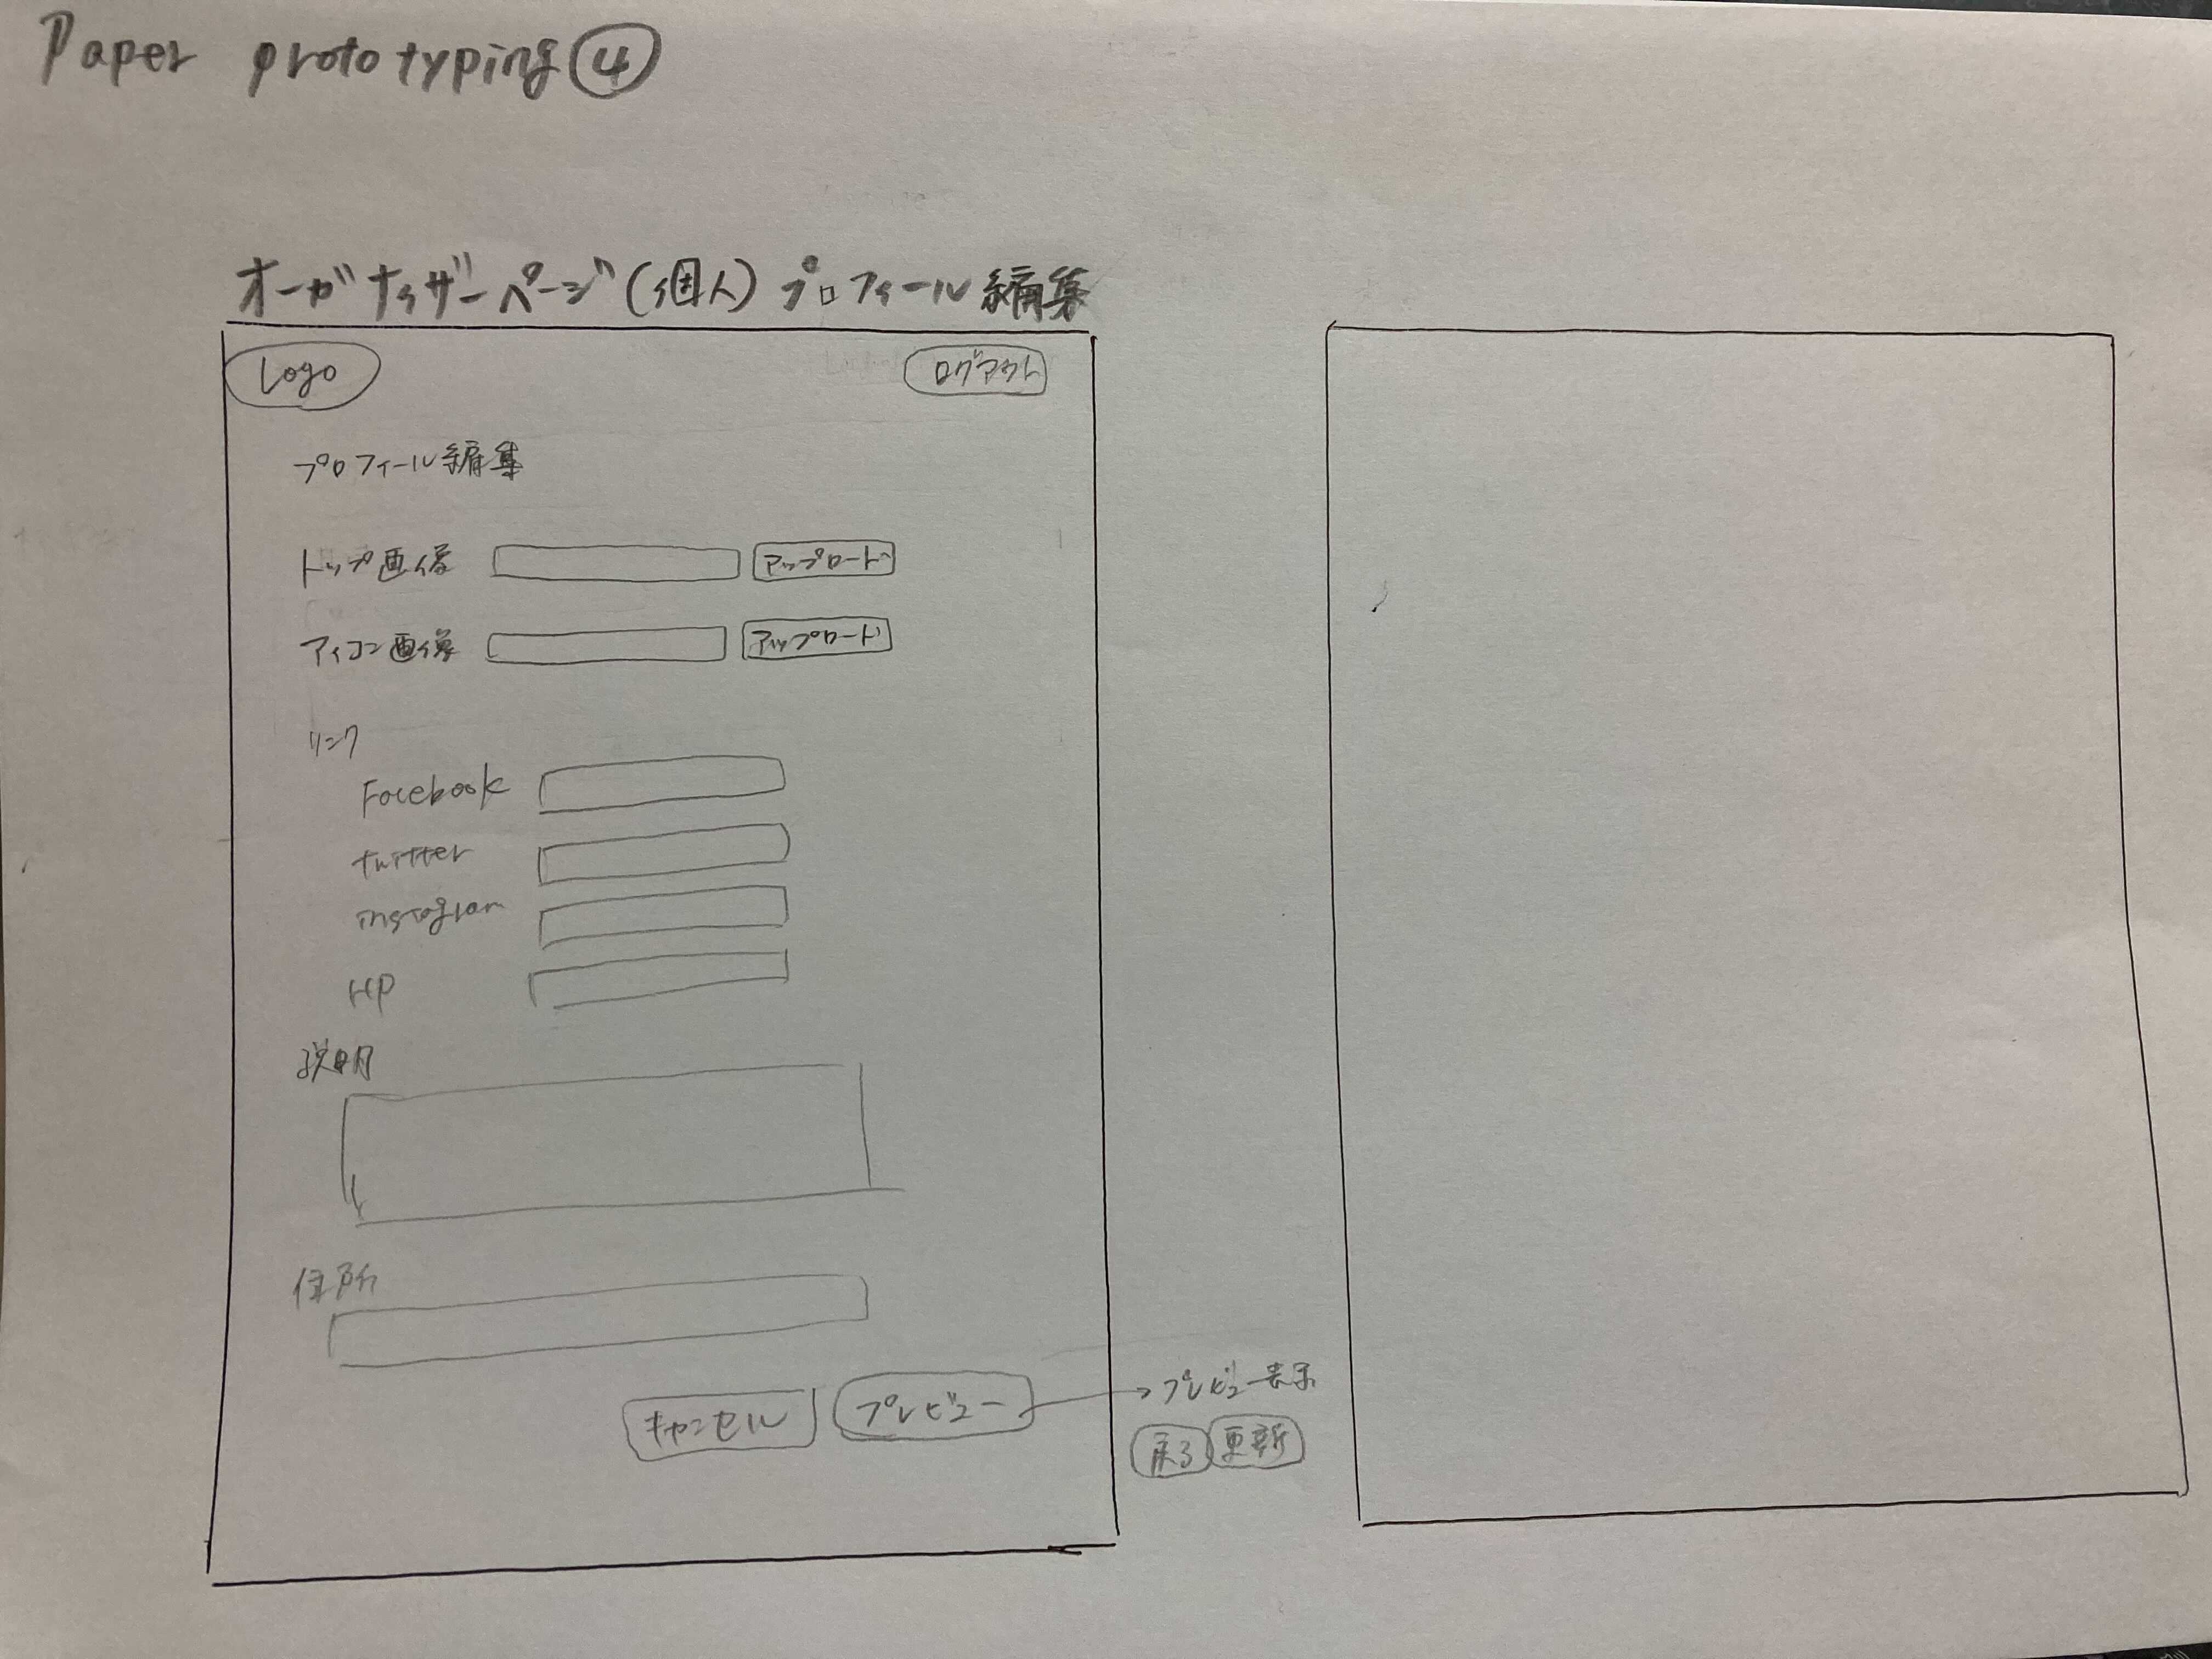 Paper prototyping④
オーガナイザーページ(個人) プロフィール編集
Logo
ログアウト
プロフィール編集
トップ画像 アップロード
アイコン画像 アップロード
リンク
Facebook
twitter
instagram
HP
説明
住所
キャンセル プレビュー →プレビュー表示
戻る 更新